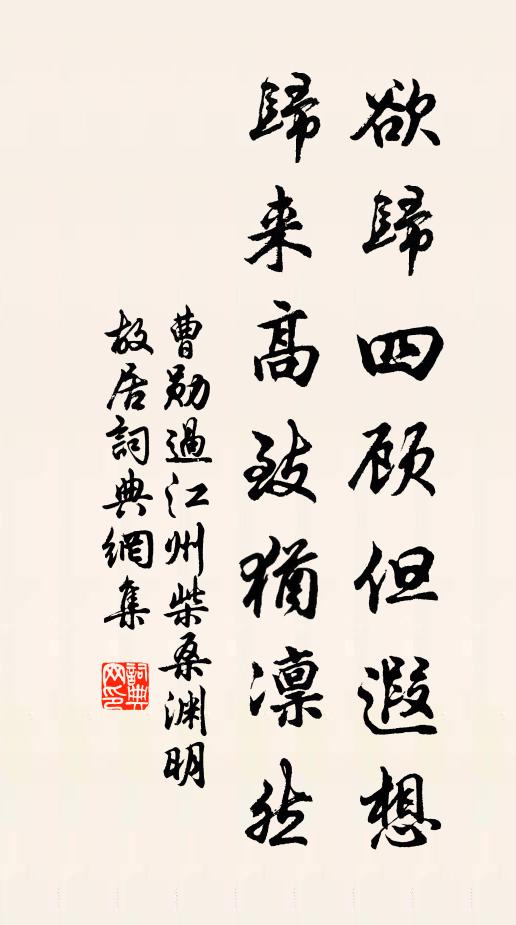 欲歸四顾但遐想
歸来高致猶凛然
曹勋過江州柴桑渊明
故居詞典網集
詞典
网印